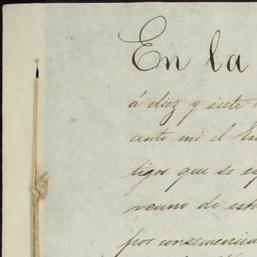 En la
á diez y siete
ante mi el
tigos que se
vecino de
por consecuencia